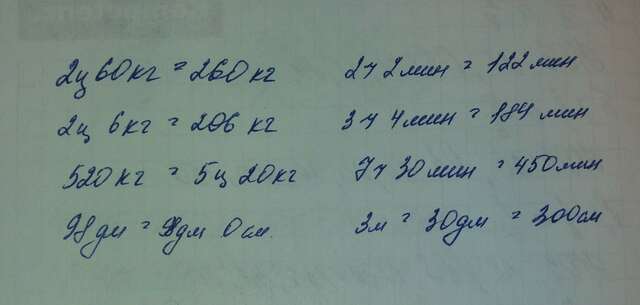 2ц 60кг = 260кг
2ц 6кг = 206 кг
520кг = 5ц 20кг
98дм = 9дм 0см
2ч 2мин = 122мин
3ч 4мин = 184 мин
7ч 30мин = 450мин
3м = 30дм = 300см